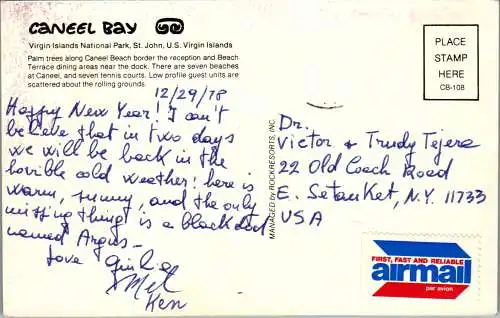 CANEEL BAY
Virgin Islands National Park, St. John, U.S. Virgin Islands
Palm trees along Caneel Beach border the reception and Beach
Terrace dining areas near the dock. There are seven beaches
at Caneel, and seven tennis courts. Low profile guest units are
scattered about the rolling grounds.
12/29/78
Happy New Year! I can't
believe that in two days
we will be back in the
horible cold weather! here is
warm, sunny, and the only
missing thing is a black
named Argus–
Love
Mel
Ken
MANAGED by ROCKRESORTS, INC.
PLACE
STAMP
HERE
CB-108
Dr.
Victor & Trudy Tejera
22 Old Coach Road
E. Setauket, N.Y. 11733
USA
FIRST, FAST AND RELIABLE
airmail
par avion